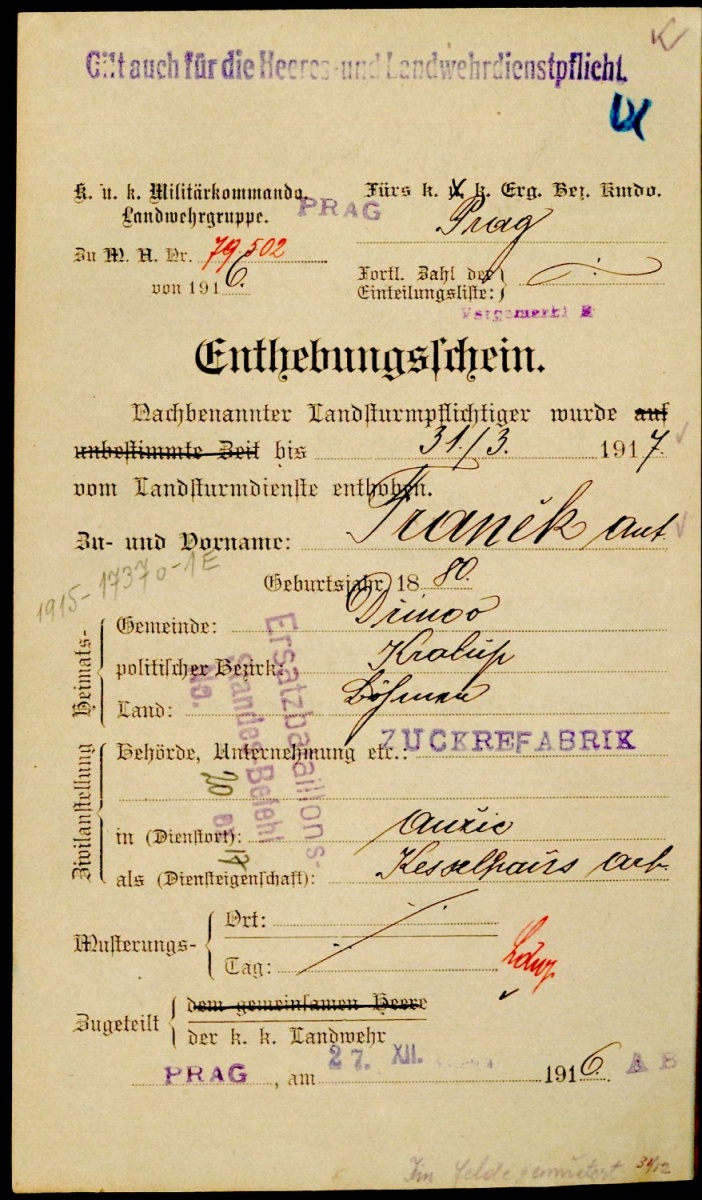 Gilt auch für die Heeres- und Landwehrdienstpflicht.
K. u. k. Militärkommando.
Landwehrgruppe. PRAG
Zu M. A. Nr. 79.502
von 1916.
Fürs k. u. k. Erg. Bez. Kmdo.
Prag
Fortl. Zahl der
Einteilungsliste:
Vorgemerkt
Enthebungsschein.
Nachbenannter Landsturmpflichtiger wurde auf
unbestimmte Zeit bis 31./3. 1917.
vom Landsturmdienste enthoben.
Zu- und Vorname: Franěk Ant.
1915-17370-1E
Geburtsjahr 1880.
Heimats-
Gemeinde: Dřinov
politischer Bezirk: Kralup
Land: Böhmen
Ersatzbataillons-
Standes-Befehl
No.
Zivilanstellung
Behörde, Unternehmung etc.: ZUCKREFABRIK
in (Dienstort): Aužic
als (Diensteigenschaft): Kesselhaus Arb.
Musterungs-
Ort:
Tag:
Zugeteilt
dem gemeinsamen Heere
der k. k. Landwehr
PRAG, am 27. XII. 1916. AB
Im Felde gemustert 31/12